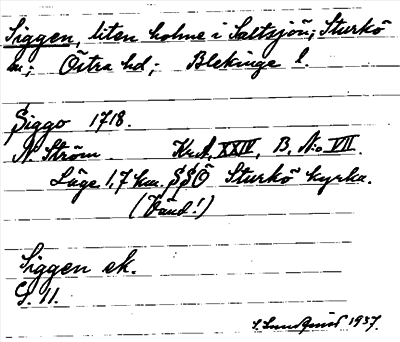 Siggen, liten holme i Saltsjön; Sturkö
sn; Östra hd; Blekinge l.
Siggo 1718.
N. Ström Krit, XXIV, B, No VII.
Läge 1,7 km. SSÖ Sturkö kyrka.
(Vänd!)
Siggen ek.
G. 11.
S. Lundquist 1937.